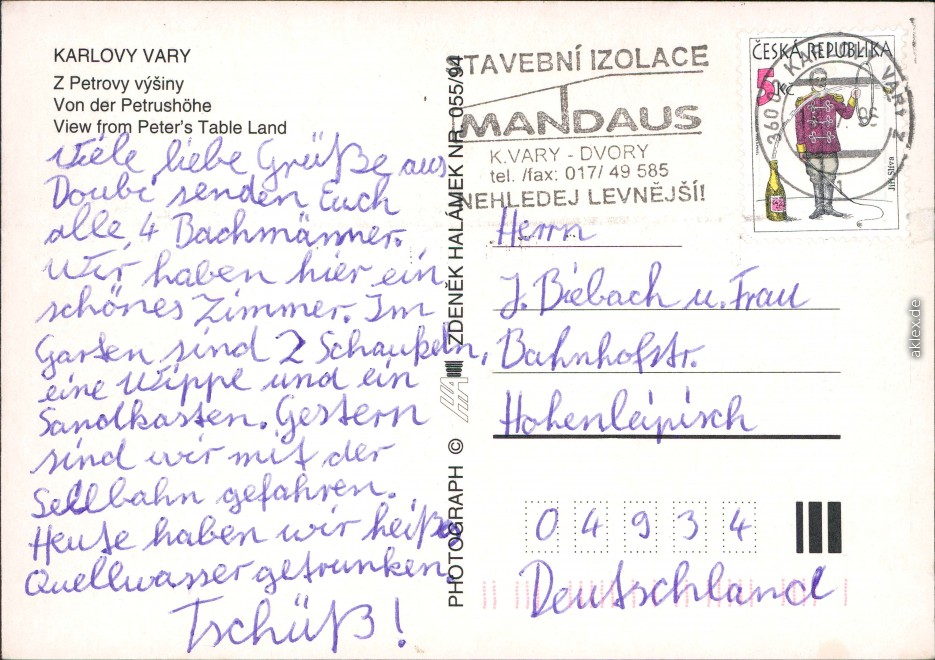 KARLOVY VARY
Z Petrovy výšiny
Von der Petrushöhe
View from Peter's Table Land
Viele liebe Grüße aus
Doubi senden Euch
alle 4 Bachmänner.
Wir haben hier ein
schönes Zimmer. Im
Garten sind 2 Schaukeln,
eine Wippe und ein
Sandkasten. Gestern
sind wir mit der
Seilbahn gefahren.
Heute haben wir heißes
Quellwasser getrunken.
Tschüß!
PHOTOGRAPH © ZDENĚK HALÁMEK NR. 055/94
STAVEBNÍ IZOLACE
MANDAUS
K.VARY - DVORY
tel. /fax: 017/ 49 585
NEHLEDEJ LEVNĚJŠÍ!
ČESKÁ REPUBLIKA
5 Kč
Jiří Slíva
360 02 KARLOVY VARY 2
Herrn
J. Biebach u. Frau
Bahnhofstr.
Hohenleipisch
04934
Deutschland
aklex.de